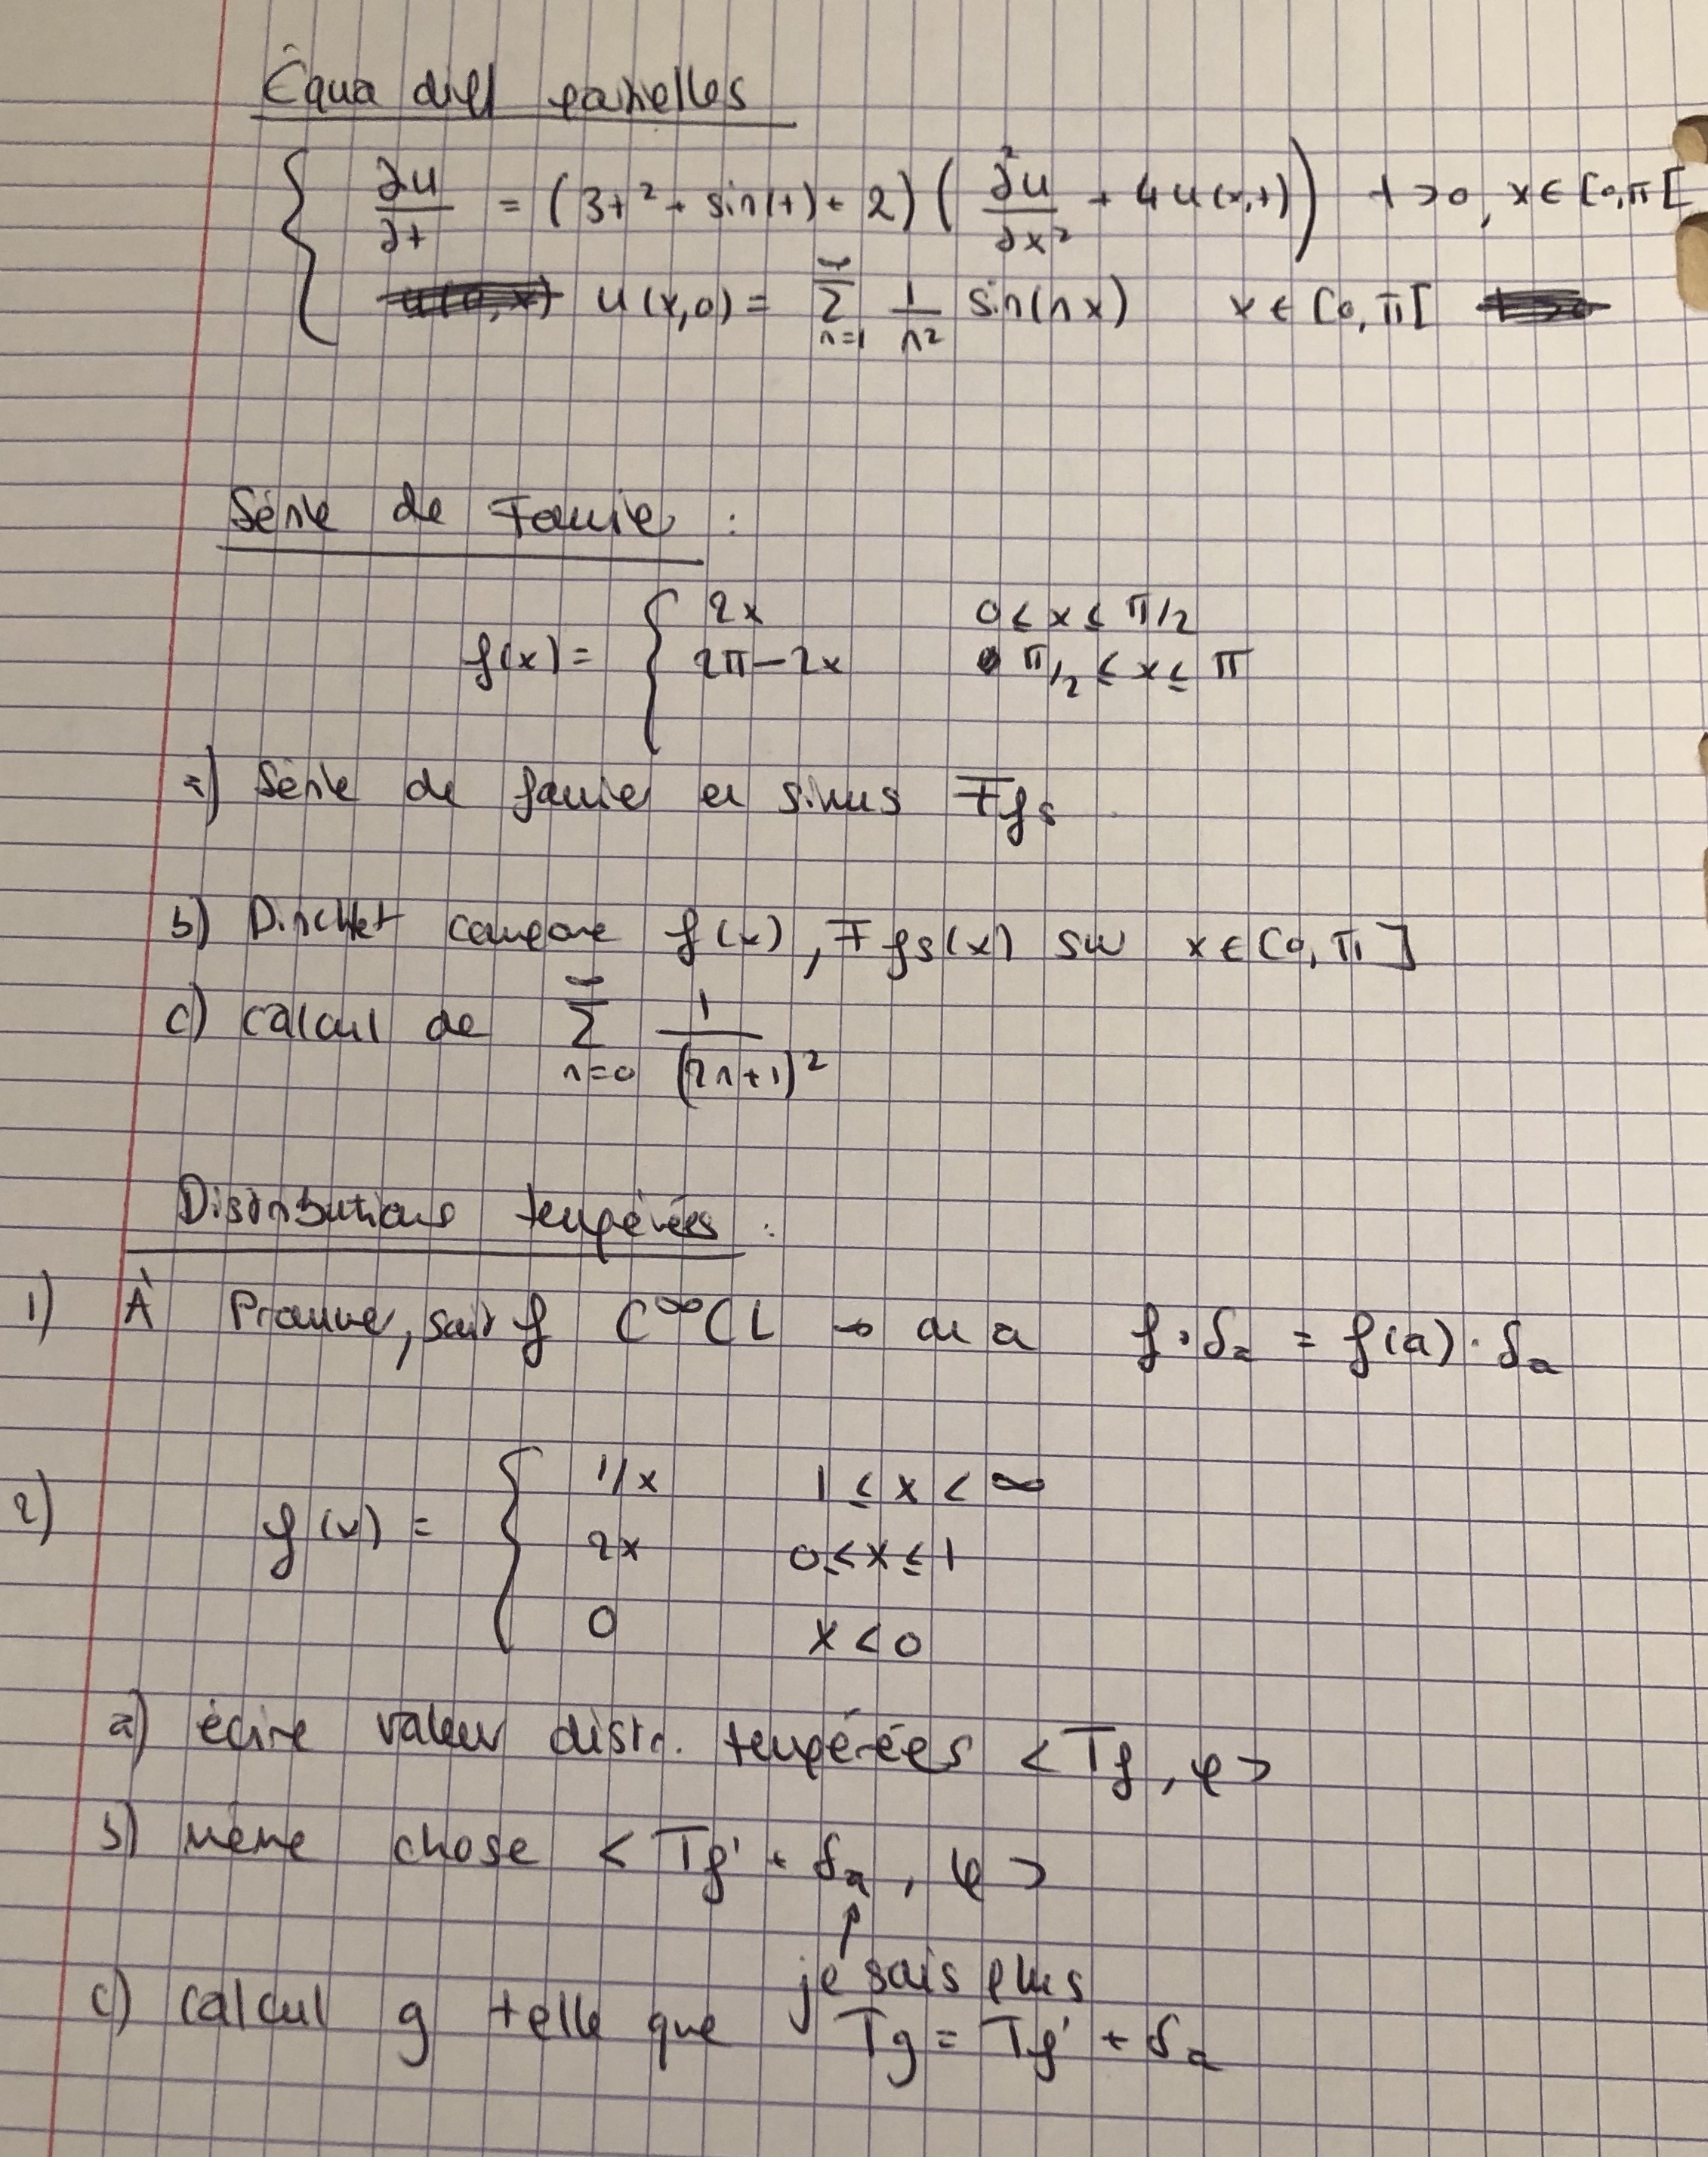 Équa diff partielles
∂u/∂t = (3t² + sin(t) + 2) ( ∂²u/∂x² + 4u(x,t) ) t>0, x ∈ [0,π[
u(x,0) = ∞ Σ n=1 1/n² sin(nx) x ∈ [0,π[
Série de Fourier :
f(x) = { 2x 0 ≤ x ≤ π/2
2π-2x π/2 ≤ x ≤ π
a) Série de fourier en sinus Ffs
b) Dirichlet compare f(x), Ffs(x) sur x ∈ [0, π]
c) calcul de ∞ Σ n=0 1/(2n+1)²
Distributions tempérées :
1) À Prouver, soit f C^∞CL → de a f·δa = f(a)·δa
2) f(x) = { 1/x 1 ≤ x < ∞
2x 0 ≤ x ≤ 1
0 x < 0
a) écrire valeur distr. tempérées <Tf, φ>
b) même chose <Tf' + δa, φ>
↑
je sais plus
c) calcul g telle que Tg = Tf' + δa